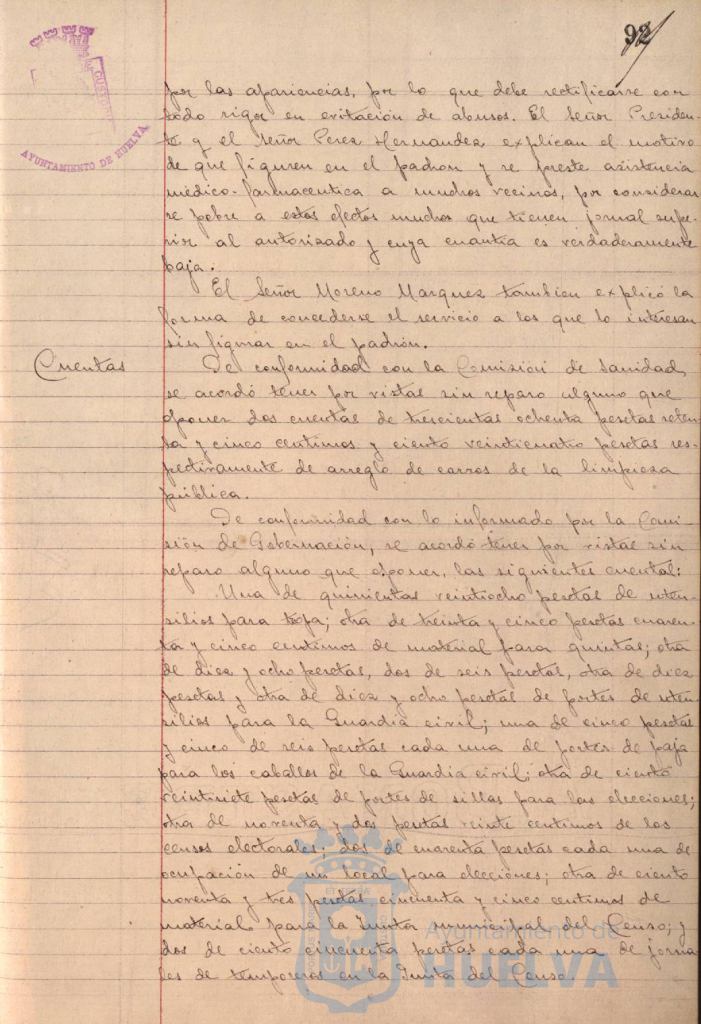 92
CUSTODIA
AYUNTAMIENTO DE HUELVA
por las apariencias, por lo que debe rectificarse con
todo rigor en evitación de abusos. El Señor Presiden-
te y el Señor Perez Hernandez explican el motivo
de que figuren en el padron y se preste asistencia
médico-farmaceutica a muchos vecinos, por considerar
se pobre a estos efectos muchos que tienen jornal supe-
rior al autorizado y cuya cuantia es verdaderamente
baja.
El Señor Moreno Marquez tambien explicó la
forma de concederse el servicio a los que lo interesan
sin figurar en el padrón.
Cuentas
De conformidad con la Comisión de Sanidad,
se acordó tener por vistas sin reparo alguno que
oponer dos cuentas de trescientas ochenta pesetas seten-
ta y cinco centimos y ciento veinticuatro pesetas res-
pectivamente de arreglo de carros de la limpieza
pública.
De conformidad con lo informado por la Comi-
sión de Gobernación, se acordó tener por vistas sin
reparo alguno que oponer, las siguientes cuentas:
Una de quinientas veintiocho pesetas de uten-
silios para tropa; otra de treinta y cinco pesetas cuaren-
ta y cinco centimos de material para quintas; otra
de diez y ocho pesetas, dos de seis pesetas, otra de diez
pesetas y otra de diez y ocho pesetas de portes de uten-
silios para la Guardia civil; una de cinco pesetas
y cinco de seis pesetas cada una de portes de paja
para los caballos de la Guardia civil; otra de ciento
veintisiete pesetas de portes de sillas para las elecciones;
otra de noventa y dos pesetas veinte centimos de los
censos electorales; dos de cuarenta pesetas cada una de
ocupación de un local para elecciones; otra de ciento
noventa y tres pesetas cincuenta y cinco centimos de
material para la Junta municipal del Censo; y
dos de ciento cincuenta pesetas cada una de jorna-
les de temporeros en la Junta del Censo.
Ayuntamiento de
HUELVA